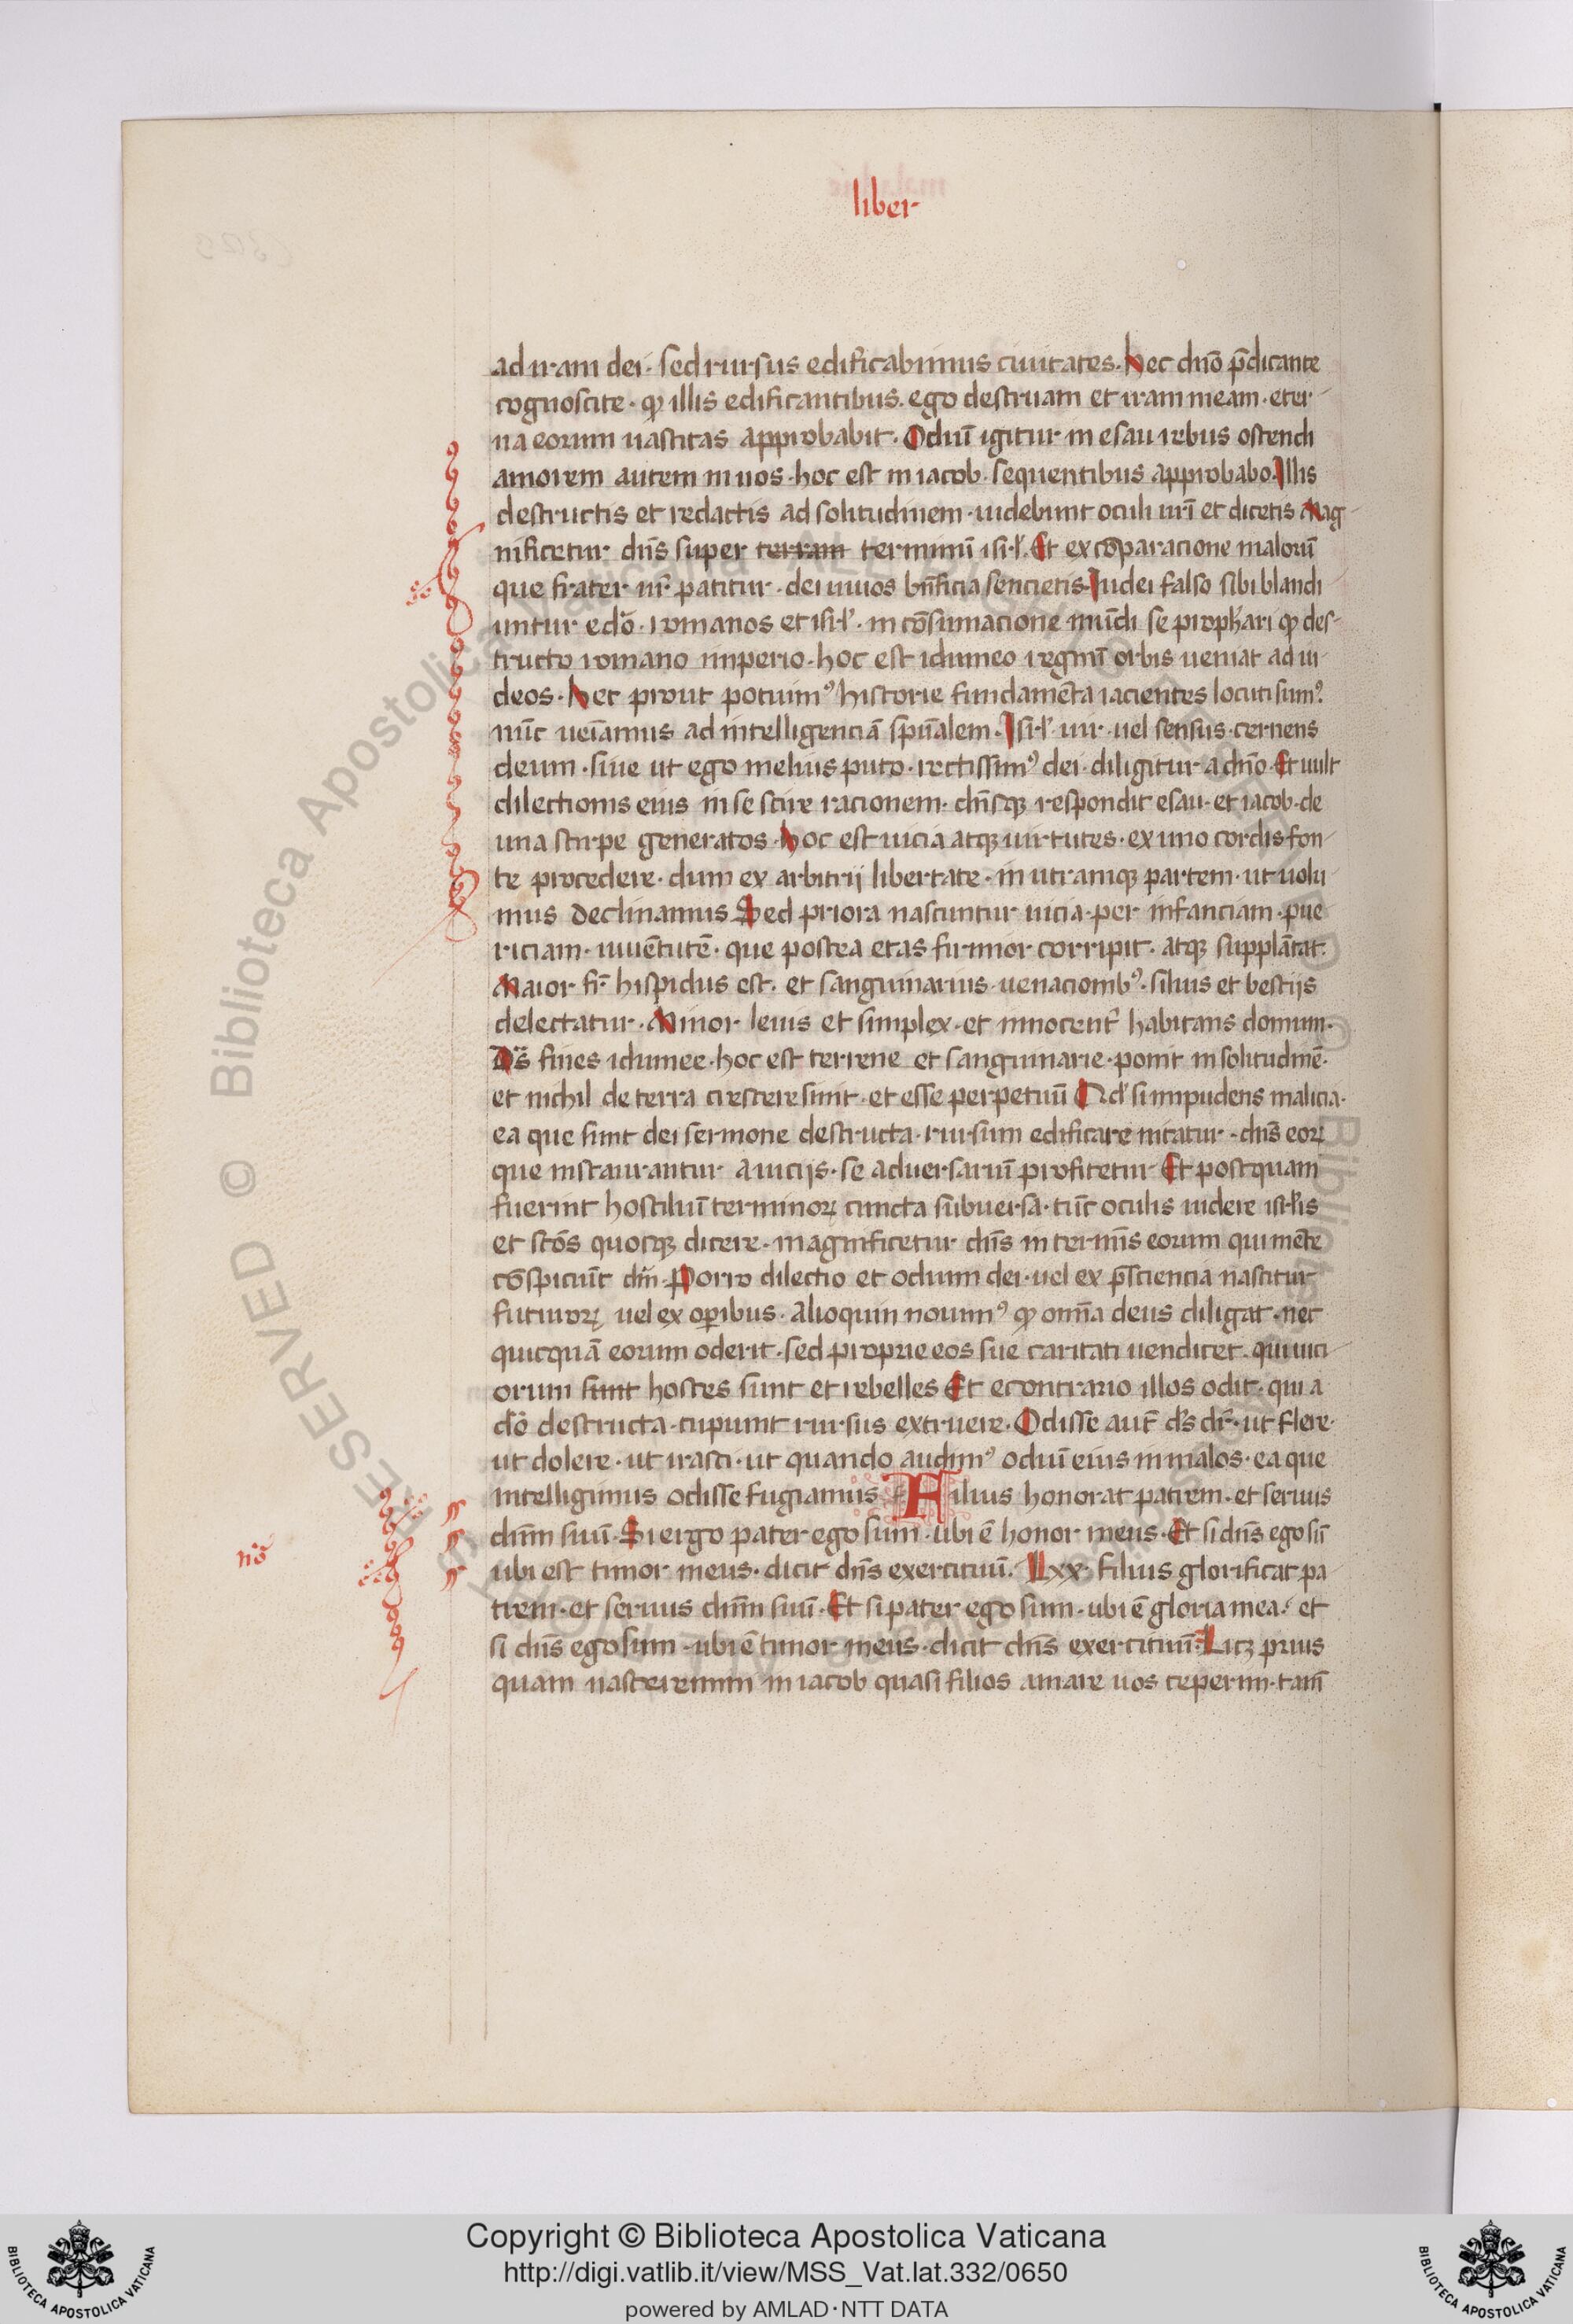 liber
ad iram dei · sed rursus edificabimus ciuitates · Hec dn̄o p̄dicante
cognoscite · qꝫ illis edificantibus · ego destruam et iram meam · eter
na eorum uastitas approbabit · Odiū igitur in esau rebus ostendi
amorem autem in uos · hoc est in iacob · sequentibus approbabo · Illis
destructis et redactis ad solitudinem · uidebunt oculi ur̄i et dicetis Mag
nificetur dn̄s super terram terminū isrl̓ · Et ex cōparacione malorū
que frater ur̄ patitur · dei in uos bn̄ficia sencietis · Iudei falso sibi blandi
untur edō · romanos et isrl̓ · in cōsumacione mūdi se prophari qꝫ des
tructo romano imperio · hoc est idumeo regnū orbis ueniat ad iu
deos · Hec prout potuimꝰ historie fundamēta iacientes locuti sumꝰ
nūc ueiamus ad intelligenciā spūalem · Isrl̓ uir uel sensus cernens
deum · siue ut ego melius puto · rectissimꝰ dei · diligitur a dn̄o · Et uult
dilectionis eius in se scire racionem · dn̄sqꝫ respondit esau · et iacob · de
una stirpe generatos · hoc est uicia atqꝫ uirtutes · ex uno cordis fon
te procedere · dum ex arbitrij libertate · in utramqꝫ partem · ut uolu
mus declinamus Sed priora nascuntur uicia · per infanciam · pue
riciam · iuuētutē · que postea etas firmior corripit · atqꝫ supplātat ·
Maior fr̄ hispidus est · et sanguinarius uenacionibꝰ · siluis et bestijs
delectatur · Minor leuis et simplex · et innocent̓ habitans domum ·
Ds̄ fines idumee · hoc est terrene et sanguinarie · ponit in solitudinē ·
et nichil de terra crescere sinit · et esse perpetuū Qd̓ si inpudens malicia ·
ea que sunt dei sermone destructa · rursum edificare nitatur · dn̄s eoꝝ
que instaurantur a uicijs · se aduersariū profitetur Et postquam
fuerint hostiliū terminoꝝ cuncta subuersa · tūc oculis uidere isrl̓is
et scōs quoqꝫ dicere · magnificetur dn̄s in termīs eorum qui mēte
cōspiciūt dn̄m · Porro dilectio et odium dei · uel ex p̄sciencia nascitur
futuroꝝ uel ex oꝑibus · alioquin nouimꝰ qꝫ omīa deus diligat · nec
quicquā eorum oderit · sed proprie eos sue caritati uendicet · qui uici
orum sunt hostes sunt et rebelles Et econtrario illos odit · qui a
dō destructa · cupiunt rursus extruere · Odisse aut̄ ds̄ dr̄ · ut flere ·
ut dolere · ut irasci · ut quando audimꝰ odiū eius in malos · ea que
intelligimus odisse fugiamus Filius honorat patrem · et seruus
dn̄m suū · Si ergo pater ego sum · ubi ē honor meus · Et si dn̄s ego sū
ubi est timor meus · dicit dn̄s exercituū · Lxx · filius glorificat pa
trem · et seruus dn̄m suū · Et si pater ego sum · ubi ē gloria mea · et
si dn̄s ego sum · ubi ē timor meus · dicit dn̄s exercituū · Licꝫ prius
quam nasceremini in iacob quasi filios amare uos ceperim · tam̄
Copyright © Biblioteca Apostolica Vaticana
http://digi.vatlib.it/view/MSS_Vat.lat.332/0650
powered by AMLAD·NTT DATA
BIBLIOTECA APOSTOLICA VATICANA
BIBLIOTECA APOSTOLICA VATICANA